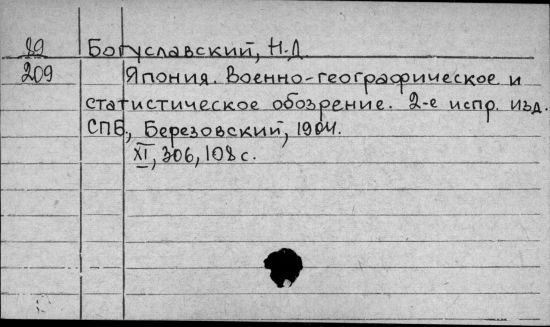 89 Богуславский, Н.Д.
209 Япония. Военно-географическое и
статистическое обозрение. 2-е испр. изд.
СПБ, Березовский, 1904.
XI, 306, 108 с.